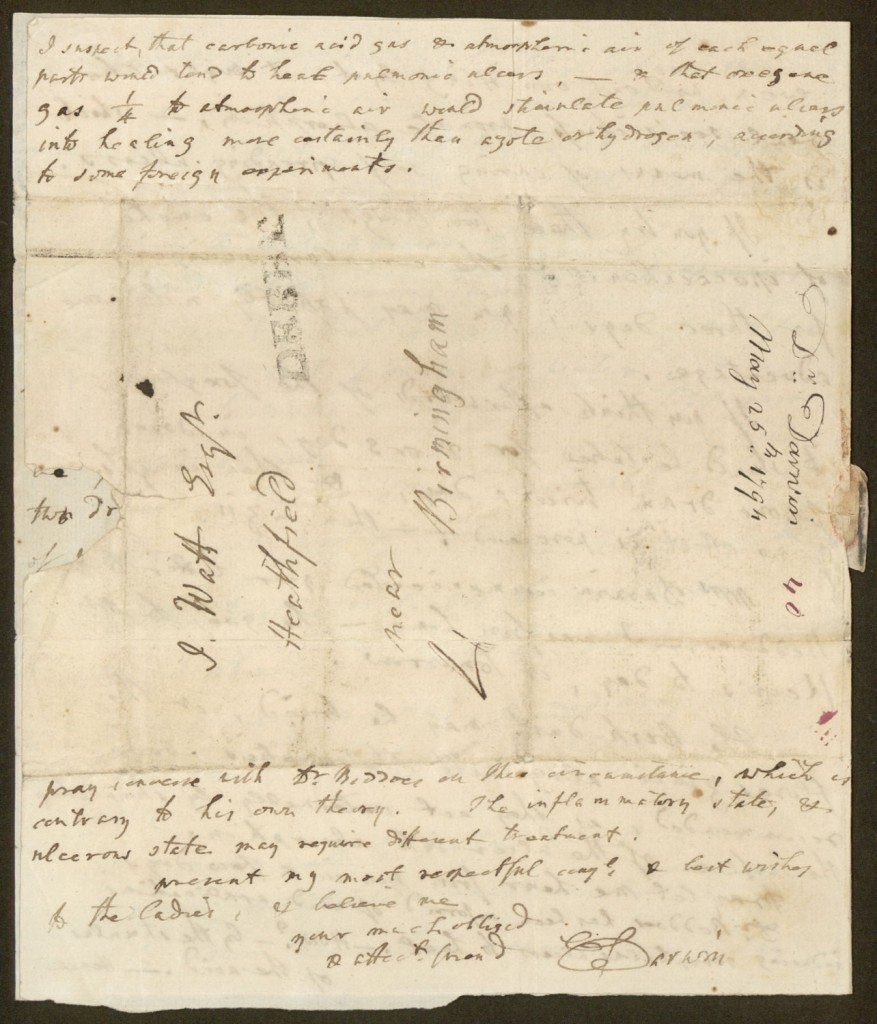 I suspect, that carbonic acid gas & atmospheric air of each equal
parts would tend to heal pulmonic ulcers, — & that oxegene
gas 1/4 to atmospheric air would stimulate pulmonic ulcers
into healing more certainly than azote or hydrogen, according
to some foreign experiments.
DERBY
J. Watt Esqr.
Heathfield
near Birmingham
Dr. Darwin
May 25th. 1794
40
two Dr
of
pray converse with Dr. Beddoes on this circumstance, which is
contrary to his own theory. The inflammatory state, &
ulcerous state may require different treatment.
present my most respectful compl. & best wishes
to the ladies, & believe me
your much obliged
& affect. friend E Darwin